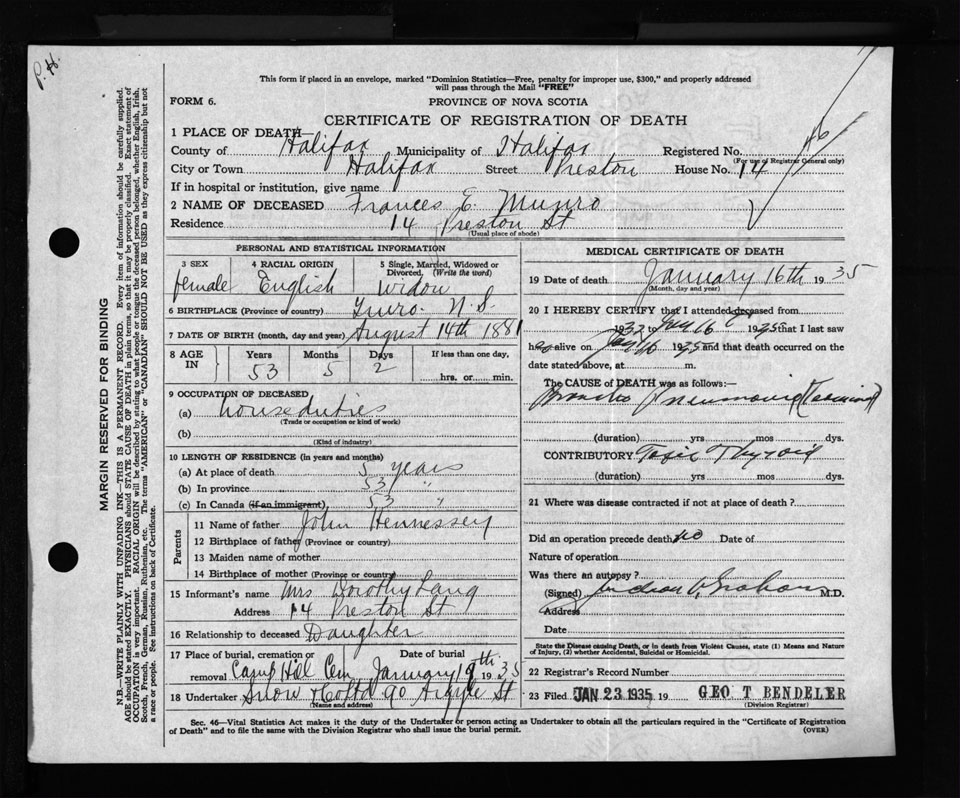 P. H.
This form if placed in an envelope, marked "Dominion Statistics—Free, penalty for improper use, $300," and properly addressed
will pass through the Mail "FREE"
FORM 6.
PROVINCE OF NOVA SCOTIA
CERTIFICATE OF REGISTRATION OF DEATH
1 PLACE OF DEATH—
County of Halifax Municipality of Halifax Registered No.
(For use of Registrar General only)
City or Town Halifax Street Preston House No. 14
If in hospital or institution, give name
2 NAME OF DECEASED Frances E. Munro
Residence 14 Preston St
(Usual place of abode)
PERSONAL AND STATISTICAL INFORMATION
3 SEX 4 RACIAL ORIGIN 5 Single, Married, Widowed or Divorced, (Write the word)
female English Widow
6 BIRTHPLACE (Province or country) Truro. N.S.
7 DATE OF BIRTH (month, day and year) August 14th 1881
8 AGE IN Years Months Days If less than one day,
53 5 2 hrs. or min.
9 OCCUPATION OF DECEASED
(a) house duties
(Trade or occupation or kind of work)
(b)
(Kind of industry)
10 LENGTH OF RESIDENCE (in years and months)
(a) At place of death 5 years
(b) In province 53 "
(c) In Canada (if an immigrant) 53 "
Parents
11 Name of father John Hennessey
12 Birthplace of father (Province or country)
13 Maiden name of mother
14 Birthplace of mother (Province or country)
15 Informant's name Mrs Dorothy Lang
Address 14 Preston St
16 Relationship to deceased Daughter
17 Place of burial, cremation or removal Date of burial
Camp Hill Cem January 19th 1935
18 Undertaker Snow & Co Ltd 90 Argyle St
(Name and address)
MEDICAL CERTIFICATE OF DEATH
19 Date of death January 16th 1935
(Month, day and year)
20 I HEREBY CERTIFY that I attended deceased from
1932 to Jany 16 1935 that I last saw
h alive on Jany 16 1935 and that death occurred on the
date stated above, at m.
The CAUSE of DEATH was as follows:—
Broncho Pneumonia (Terminal)
(duration) yrs mos dys.
CONTRIBUTORY Toxic Thyroid
(duration) yrs mos dys.
21 Where was disease contracted if not at place of death?
Did an operation precede death no Date of
Nature of operation
Was there an autopsy?
(Signed) Judson V. Graham M.D.
Address
Date
State the Disease causing Death, or in death from Violent Causes, state (1) Means and Nature
of Injury, (2) whether Accidental, Suicidal or Homicidal.
22 Registrar's Record Number
23 Filed JAN 23 1935 19 GEO T BENDELER
(Division Registrar)
Sec. 46—Vital Statistics Act makes it the duty of the Undertaker or person acting as Undertaker to obtain all the particulars required in the "Certificate of Registration
of Death" and to file the same with the Division Registrar who shall issue the burial permit.
(OVER)
MARGIN RESERVED FOR BINDING
N.B.—WRITE PLAINLY WITH UNFADING INK—THIS IS A PERMANENT RECORD. Every item of information should be carefully supplied.
AGE should be stated EXACTLY. PHYSICIANS should STATE CAUSE OF DEATH in plain terms, so that it may be properly classified. Exact statement of
OCCUPATION is very important. RACIAL ORIGIN will be described by stating to what people or tongue the deceased person belonged, whether English, Irish,
Scotch, French, German, Russian, Ruthenian, etc. The terms "AMERICAN" or "CANADIAN" SHOULD NOT BE USED as they express citizenship but not
a race or people. See instructions on back of Certificate.